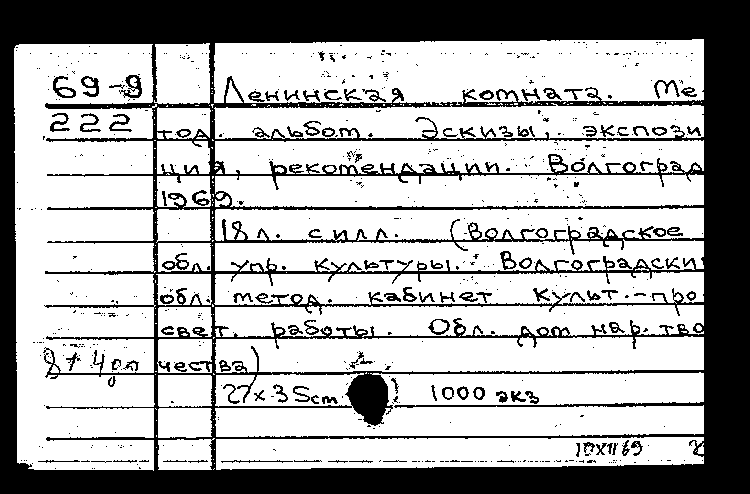 69-9 Ленинская комната. Ме-
222 тод. альбом. Эскизы, экспози
ция, рекомендации. Волгоград
1969.
18 л. с илл. (Волгоградское
обл. упр. культуры. Волгоградски
обл. метод. кабинет культ.-про
свет. работы. Обл. дом нар. тво
чества)
27×35см ) 1000 экз
10XII69